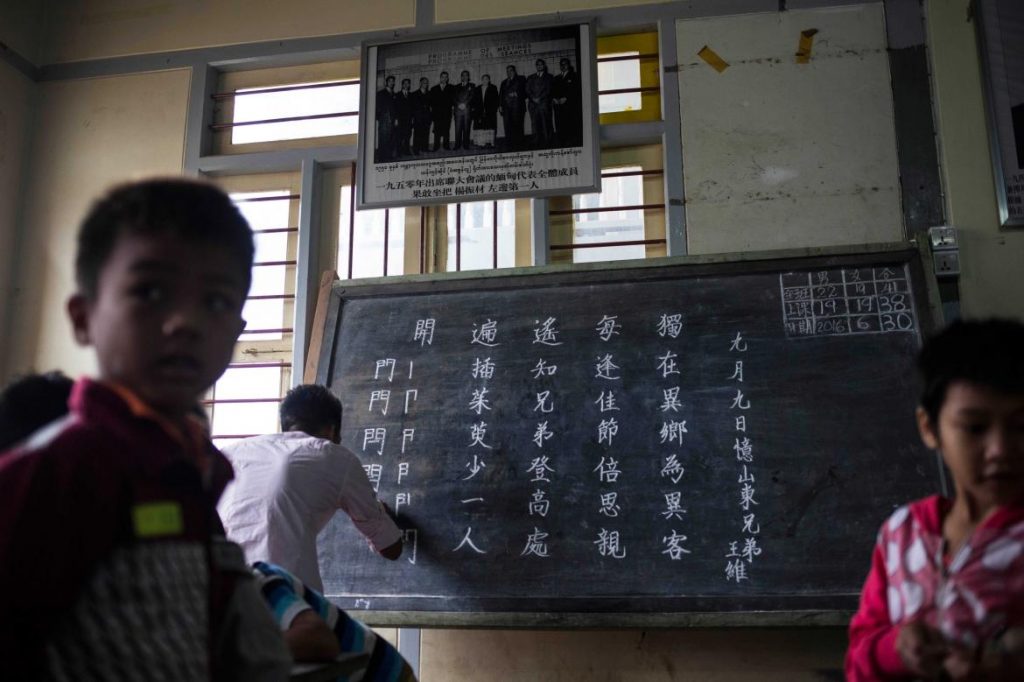 PROGRAMME OF MEETINGS
DES SEANCES
一九五零年出席聯大會議的緬甸代表全體成員
果敢坐把 楊振材 左邊第一人
男 女 合
22 19 41
上課 19 19 38
日期 2016 6 30
九月九日憶山東兄弟 王維
獨在異鄉為異客
每逢佳節倍思親
遙知兄弟登高處
遍插茱萸少一人
開